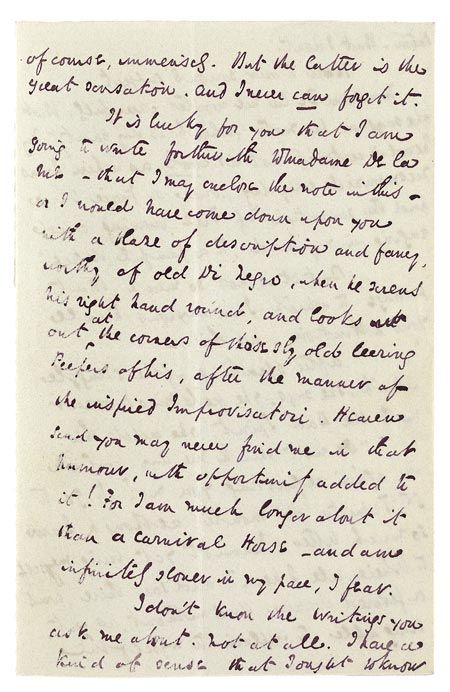 of course, immensely. But the latter is the
great sensation. And I never can forget it.
It is lucky for you that I am
going to write forthwith to Madame De la
Rue – that I may enclose the note in this –
or I would have come down upon you
with a blaze of description and fancy,
worthy of old Di Negro, when he screws
his right hand round, and looks
out at the corners of those sly old leering
Peepers of his, after the manner of
the inspired Improvisatori. Heaven
send you may never find me in that
humour, with opportunity added to
it! For I am much longer about it
than a carnival Horse – and am
infinitely slower in my pace, I fear.
I don't know the writings you
ask me about. not at all. I have a
kind of sense that I ought to know